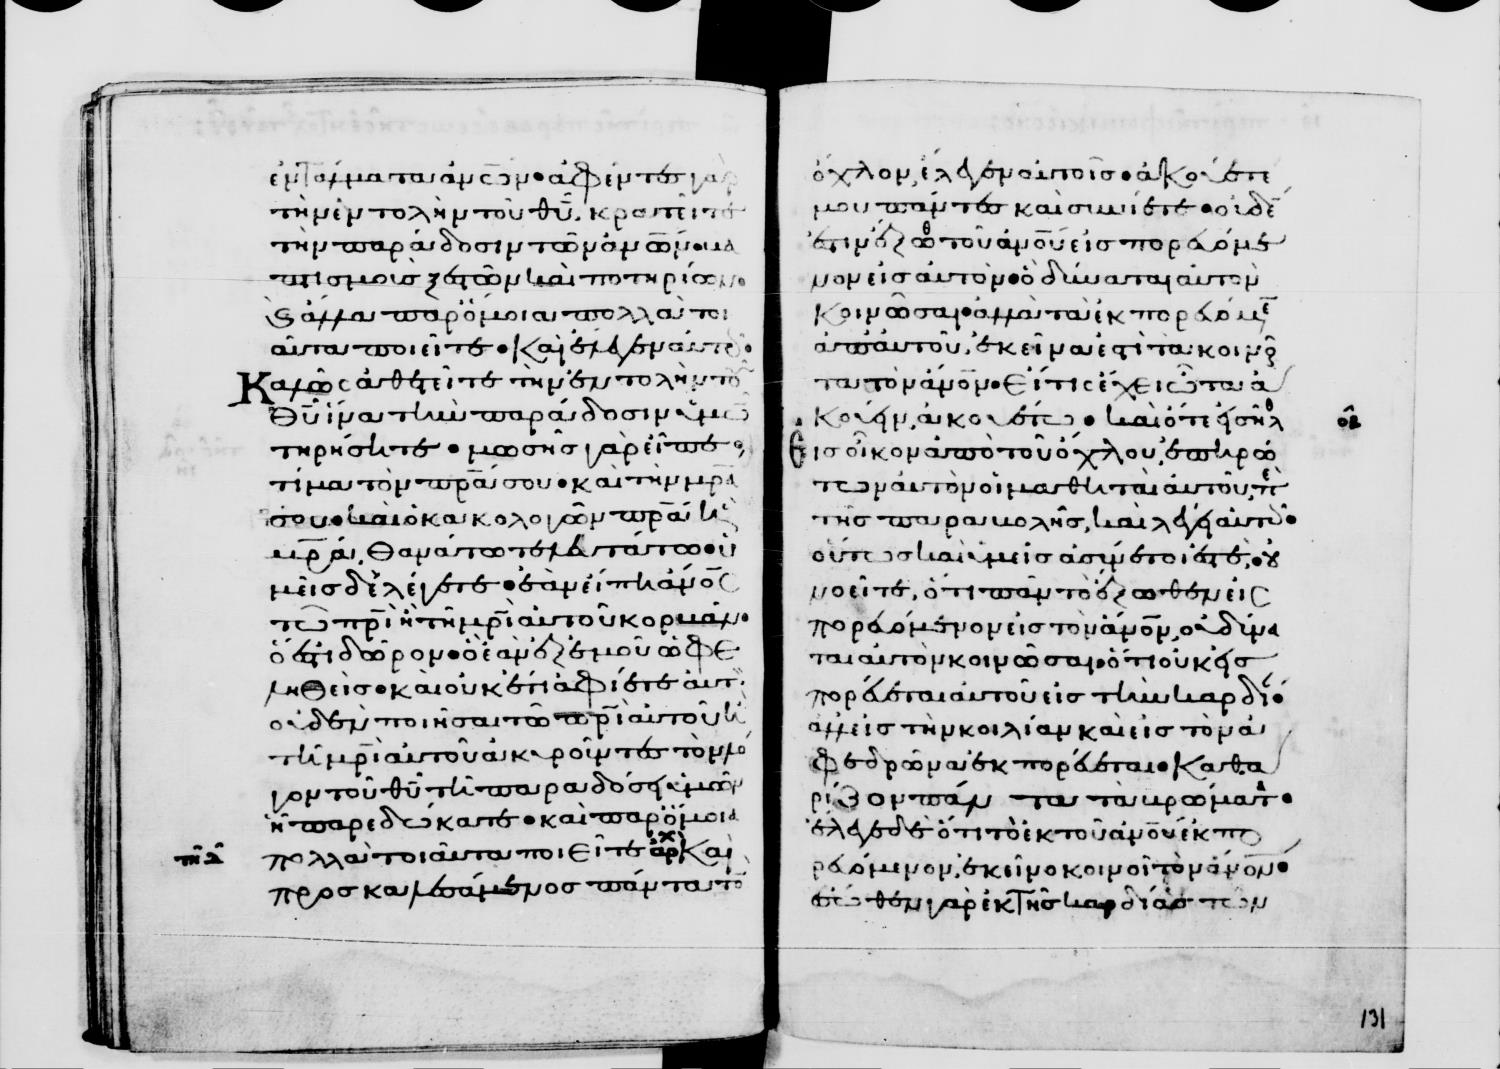 ἐνταλματα ἀν̅ων· ἀφέντες γὰρ
τὴν ἐντολὴν τοῦ θ̅υ, κρατεῖτε
τὴν παράδοσιν τῶν ἀν̅ων· βα
πτισμοὺς ξεστῶν καὶ ποτηρίων·
καὶ ἄλλα παρόμοια πολλὰ τοι
αῦτα ποιεῖτε· Καὶ ἔλεγεν αὐτοῖς·
Καλῶς ἀθετεῖτε τὴν ἐντολὴν τοῦ
θ̅υ ἵνα τὴν παράδοσιν ὑμῶν
τηρήσητε· μωσῆς γὰρ εἶπε·
τίμα τὸν π̅ρα σου· καὶ τὴν μ̅ρα
σου· καὶ ὁ κακολογῶν π̅ρα ἢ
μ̅ρα, θανάτω τελευτάτω· ὑ
μεῖς δὲ λέγετε· ἐὰν εἴπη ἀν̅ος
τῶ π̅ρι ἢ τῆ μ̅ρι αὐτοῦ κορβάν·
ὅ ἐστι δῶρον· ὃ ἐὰν ἐξ ἐμοῦ ὠφε
ληθεὶς· καὶ οὐκέτι ἀφίετε αὐτὸν
οὐδὲν ποιῆσαι τῶ π̅ρι αὐτοῦ ἢ
τῆ μ̅ρι αὐτοῦ ἀκυροῦντες τὸν λό
γον τοῦ θ̅υ τῆ παραδόσει ὑμῶν
ἧ παρεδώκατε· καὶ παρόμοια
πολλὰ τοιαῦτα ποιεῖτε ἀρχ Καὶ
προσκαλεσάμενος πάντα τὸν
ὄχλον, ἔλεγεν αὐτοῖς· ἀκούετε
μου πάντες καὶ συνίετε· οὐδέν
ἐστιν ἔξωθ τοῦ ἀν̅ου εἰσπορευόμε
νον εἰς αὐτὸν· ὃ δύναται αὐτὸν
κοινῶσαι· ἀλλὰ τὰ ἐκπορευόμε
ἀπ' αὐτοῦ, ἐκεῖνα ἐστὶ τὰ κοινοῦν
τα τὸν ἀν̅ον· Εἴ τις ἔχει ὦτα ἀ
κούειν, ἀκουέτω· καὶ ὅτε εἰσῆλθ
Εἰς οἶκον ἀπὸ τοῦ ὄχλου, ἐπηρώ
των αὐτὸν οἱ μαθηταὶ αὐτοῦ, περὶ
τῆς παραβολῆς, καὶ λέγει αὐτοῖς·
οὕτως καὶ ὑμεῖς ἀσύνετοί ἐστε· οὐ
νοεῖτε, ὅτι πᾶν τὸ ἔξωθεν εἰς
πορευόμενον εἰς τὸν ἀν̅ον, οὐ δύνα
ται αὐτὸν κοινῶσαι· ὅτι οὐκ εἰσ
πορεύεται αὐτοῦ εἰς τὴν καρδίαν·
ἀλλ' εἰς τὴν κοιλίαν καὶ εἰς τὸν ἀ
φεδρῶνα ἐκπορεύεται· Καθα
ρίζον πάντα τὰ βρώματα·
ἔλεγε δὲ ὅτι τὸ ἐκ τοῦ ἀν̅ου ἐκπο
ρευόμενον, ἐκεῖνο κοινοῖ τὸν ἀν̅ον·
ἔσωθεν γὰρ ἐκ τῆς καρδίας τῶν
131